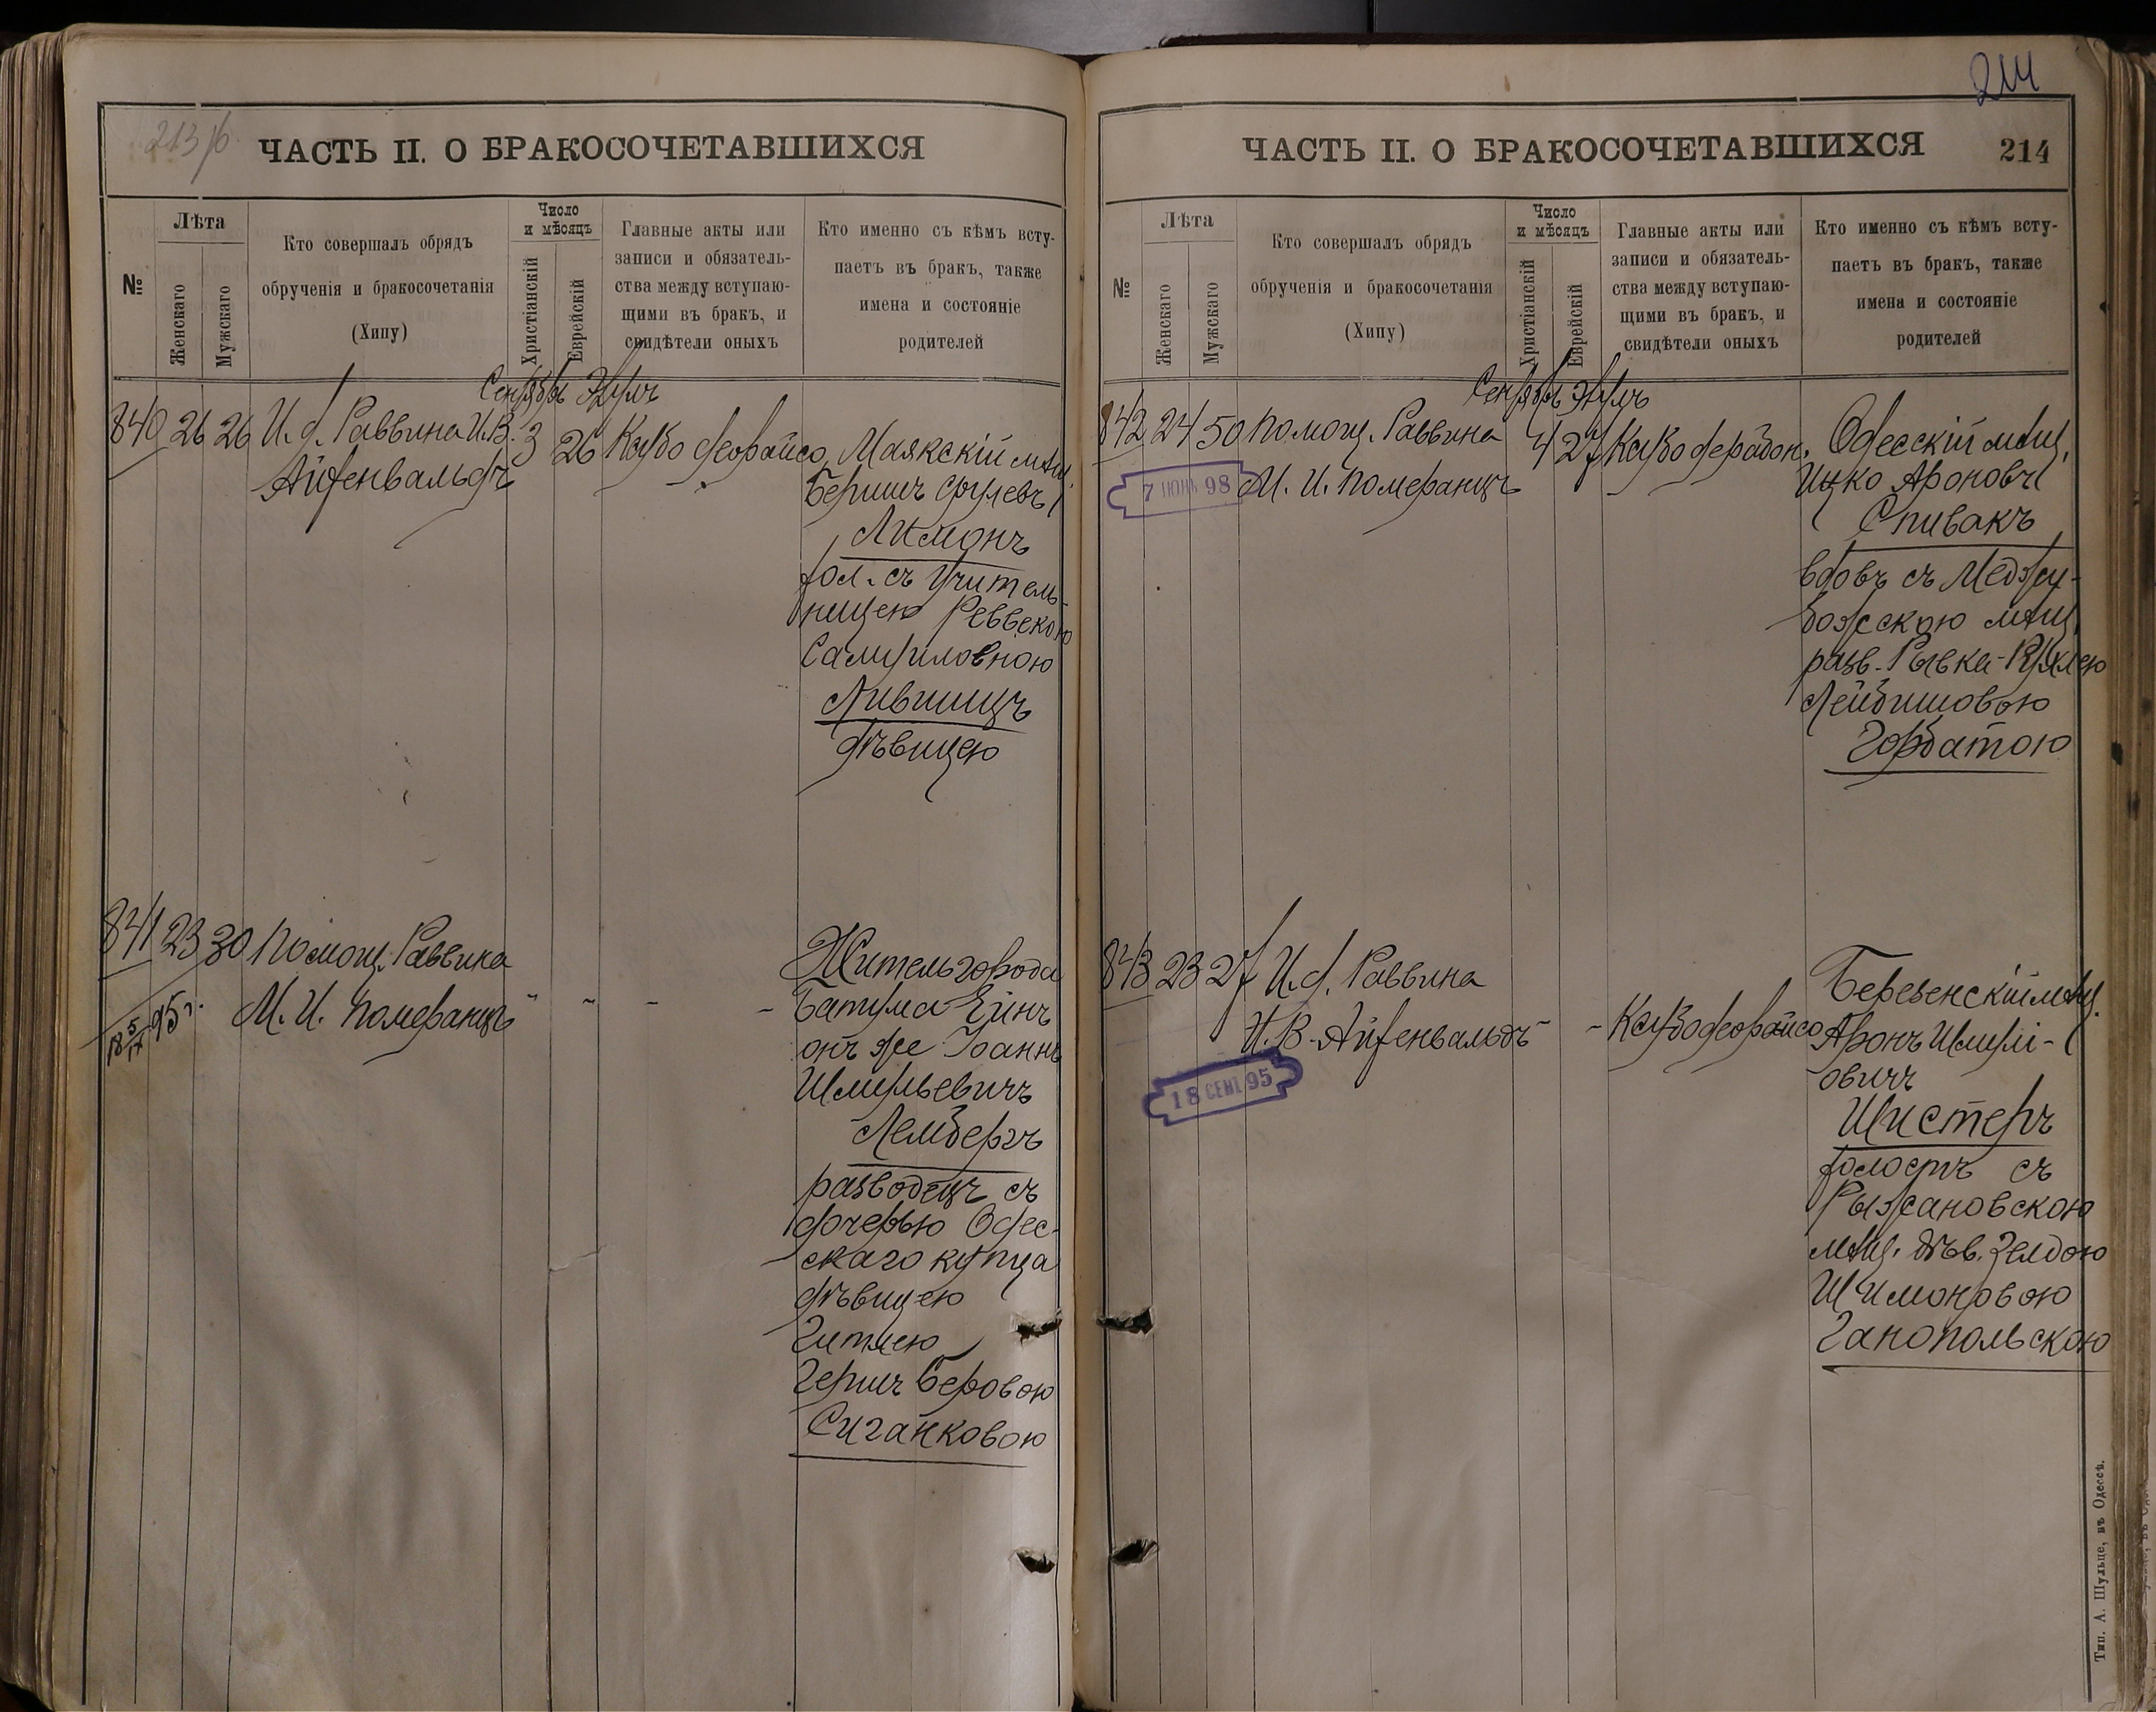 213 об
ЧАСТЬ II. О БРАКОСОЧЕТАВШИХСЯ
№
Лѣта
Женскаго
Мужскаго
Кто совершалъ обрядъ
обрученія и бракосочетанія
(Хипу)
Число
и мѣсяцъ
Христіанскій
Еврейскій
Главные акты или
записи и обязатель-
ства между вступаю-
щими въ бракъ, и
свидѣтели оныхъ
Кто именно съ кѣмъ всту-
паетъ въ бракъ, также
имена и состояніе
родителей
Сентябрь Элулъ
840 26 26 И. д. Раввина И. В. 3 26 Маякскій мѣщ.
Айзенвальдъ
Бершъ Срулевъ
Лимонъ
хол. съ Учитель-
ницею Реввекою
Самуиловною
Лившицъ
дѣвицею
841 23 30 Помощ. Раввина
18 5/IX 95 г.
М. И. Померанцъ " - - -
Житель города
Батума Ейнъ
онъ же Іоаннъ
Шмульевичъ
Лембергъ
разводецъ съ
дочерью Одес-
скаго купца
дѣвицею
Гитлею
Гершъ Беровою
Сиганковою
214
ЧАСТЬ II. О БРАКОСОЧЕТАВШИХСЯ
214
№
Лѣта
Женскаго
Мужскаго
Кто совершалъ обрядъ
обрученія и бракосочетанія
(Хипу)
Число
и мѣсяцъ
Христіанскій
Еврейскій
Главные акты или
записи и обязатель-
ства между вступаю-
щими въ бракъ, и
свидѣтели оныхъ
Кто именно съ кѣмъ всту-
паетъ въ бракъ, также
имена и состояніе
родителей
Сентябрь Элулъ
842 24 50 Помощ. Раввина 4 27 Одесскій мѣщ.
7 ІЮНЬ 98
М. И. Померанцъ
Ицко Ароновъ
Спивакъ
вдовъ съ Меджи-
божскою мѣщ.
разв. Рывка-Рухлею
Лейбишовою
Горбатою
843 23 27 И. д. Раввина
И. В. Айзенвальдъ - -
18 СЕНТ 95
Березенскій мѣщ.
Аронъ Шмулі-
овичъ
Шистеръ
холостъ съ
Рыжановскою
мѣщ. дѣв. Зелдою
Шимоновою
Ганопольскою
Тип. А. Шульце, въ Одессѣ.